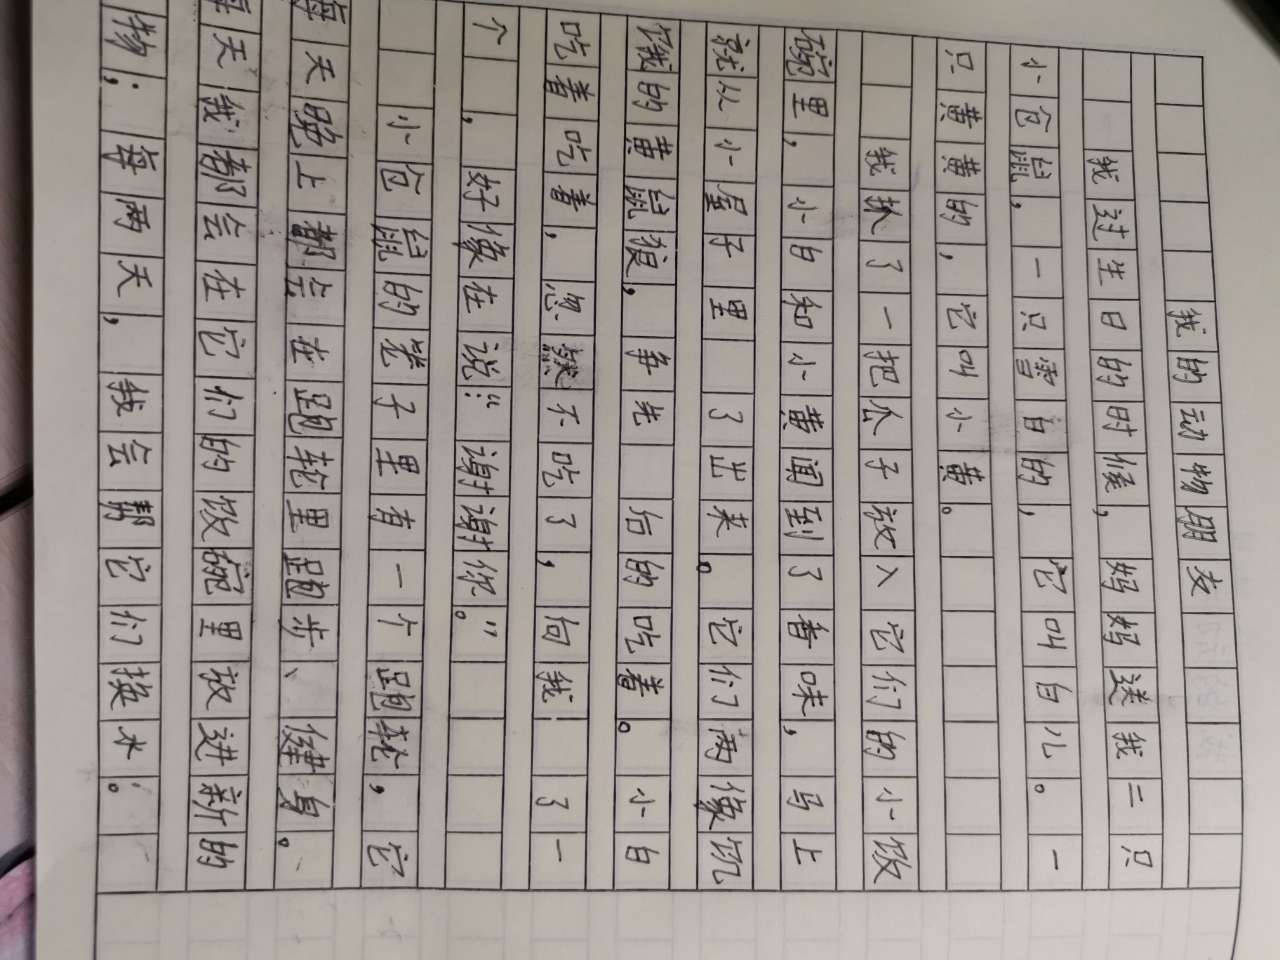 我的动物朋友
我过生日的时候，妈妈送我二只
小仓鼠，一只雪白的，它叫白儿。一
只黄黄的，它叫小黄。
我抓了一把瓜子放入它们的小饭
碗里，小白和小黄闻到了香味，马上
就从小屋子里 了出来。它们两像饥
饿的黄鼠狼，争先 后的吃着。小白
吃着吃着，忽然不吃了，向我 了一
个 ，好像在说：“谢谢你。”
小仓鼠的笼子里有一个跑轮，它
每天晚上都会在跑轮里跑步、健身。
每天我都会在它们的饭碗里放进新的
物；每两天，我会帮它们换水。